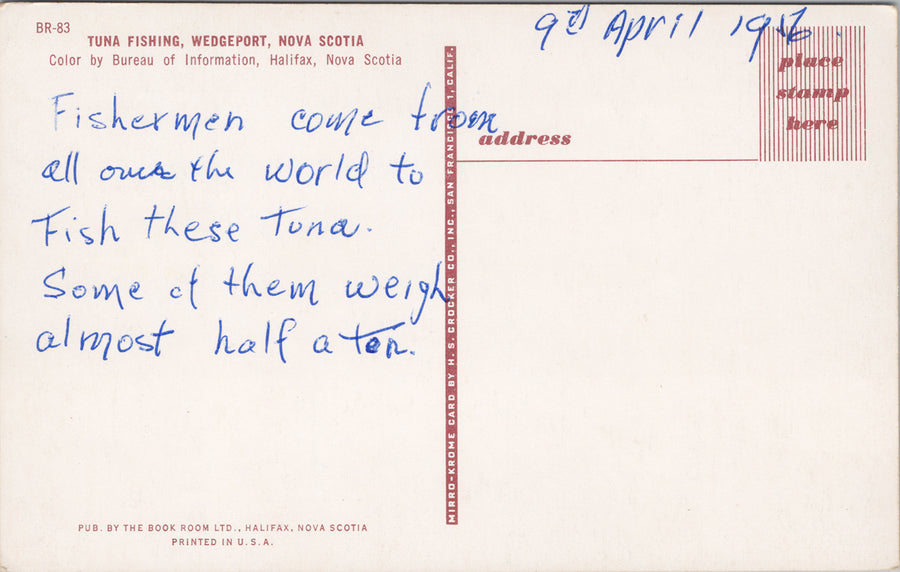 BR-83
TUNA FISHING, WEDGEPORT, NOVA SCOTIA
Color by Bureau of Information, Halifax, Nova Scotia
Fishermen come from
all over the world to
Fish these Tuna.
Some of them weigh
almost half a ton.
PUB. BY THE BOOK ROOM LTD., HALIFAX, NOVA SCOTIA
PRINTED IN U.S.A.
MIRRO-KROME CARD BY H. S. CROCKER CO., INC., SAN FRANCISCO 1, CALIF.
April
place
stamp
here
address